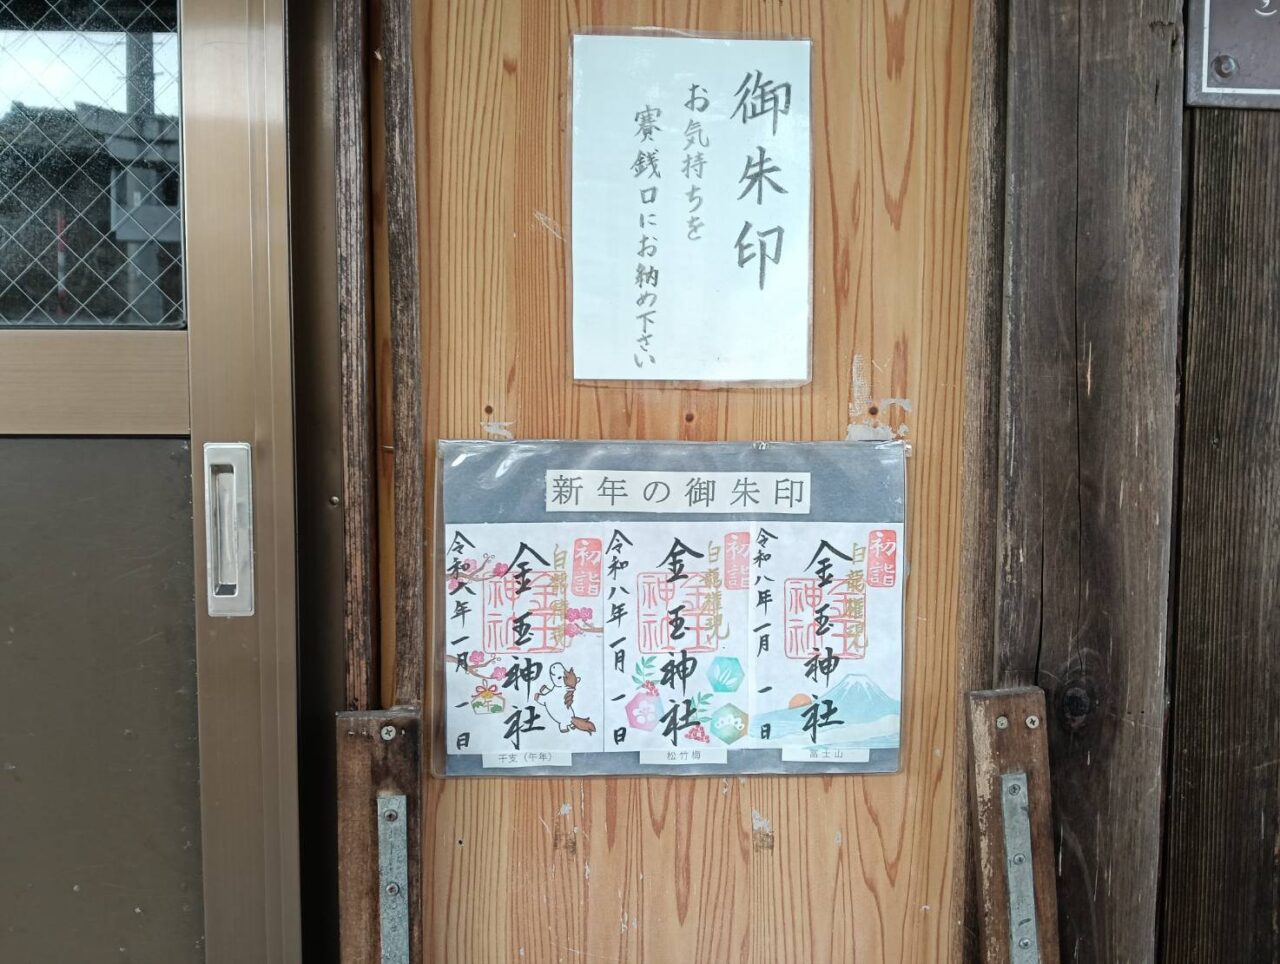 御朱印
お気持ちを
賽銭口にお納め下さい
新年の御朱印
初詣
白龍権現
金玉神社
令和八年一月一日
干支（午年）
初詣
白龍権現
金玉神社
令和八年一月一日
松竹梅
初詣
白龍権現
金玉神社
令和八年一月一日
富士山